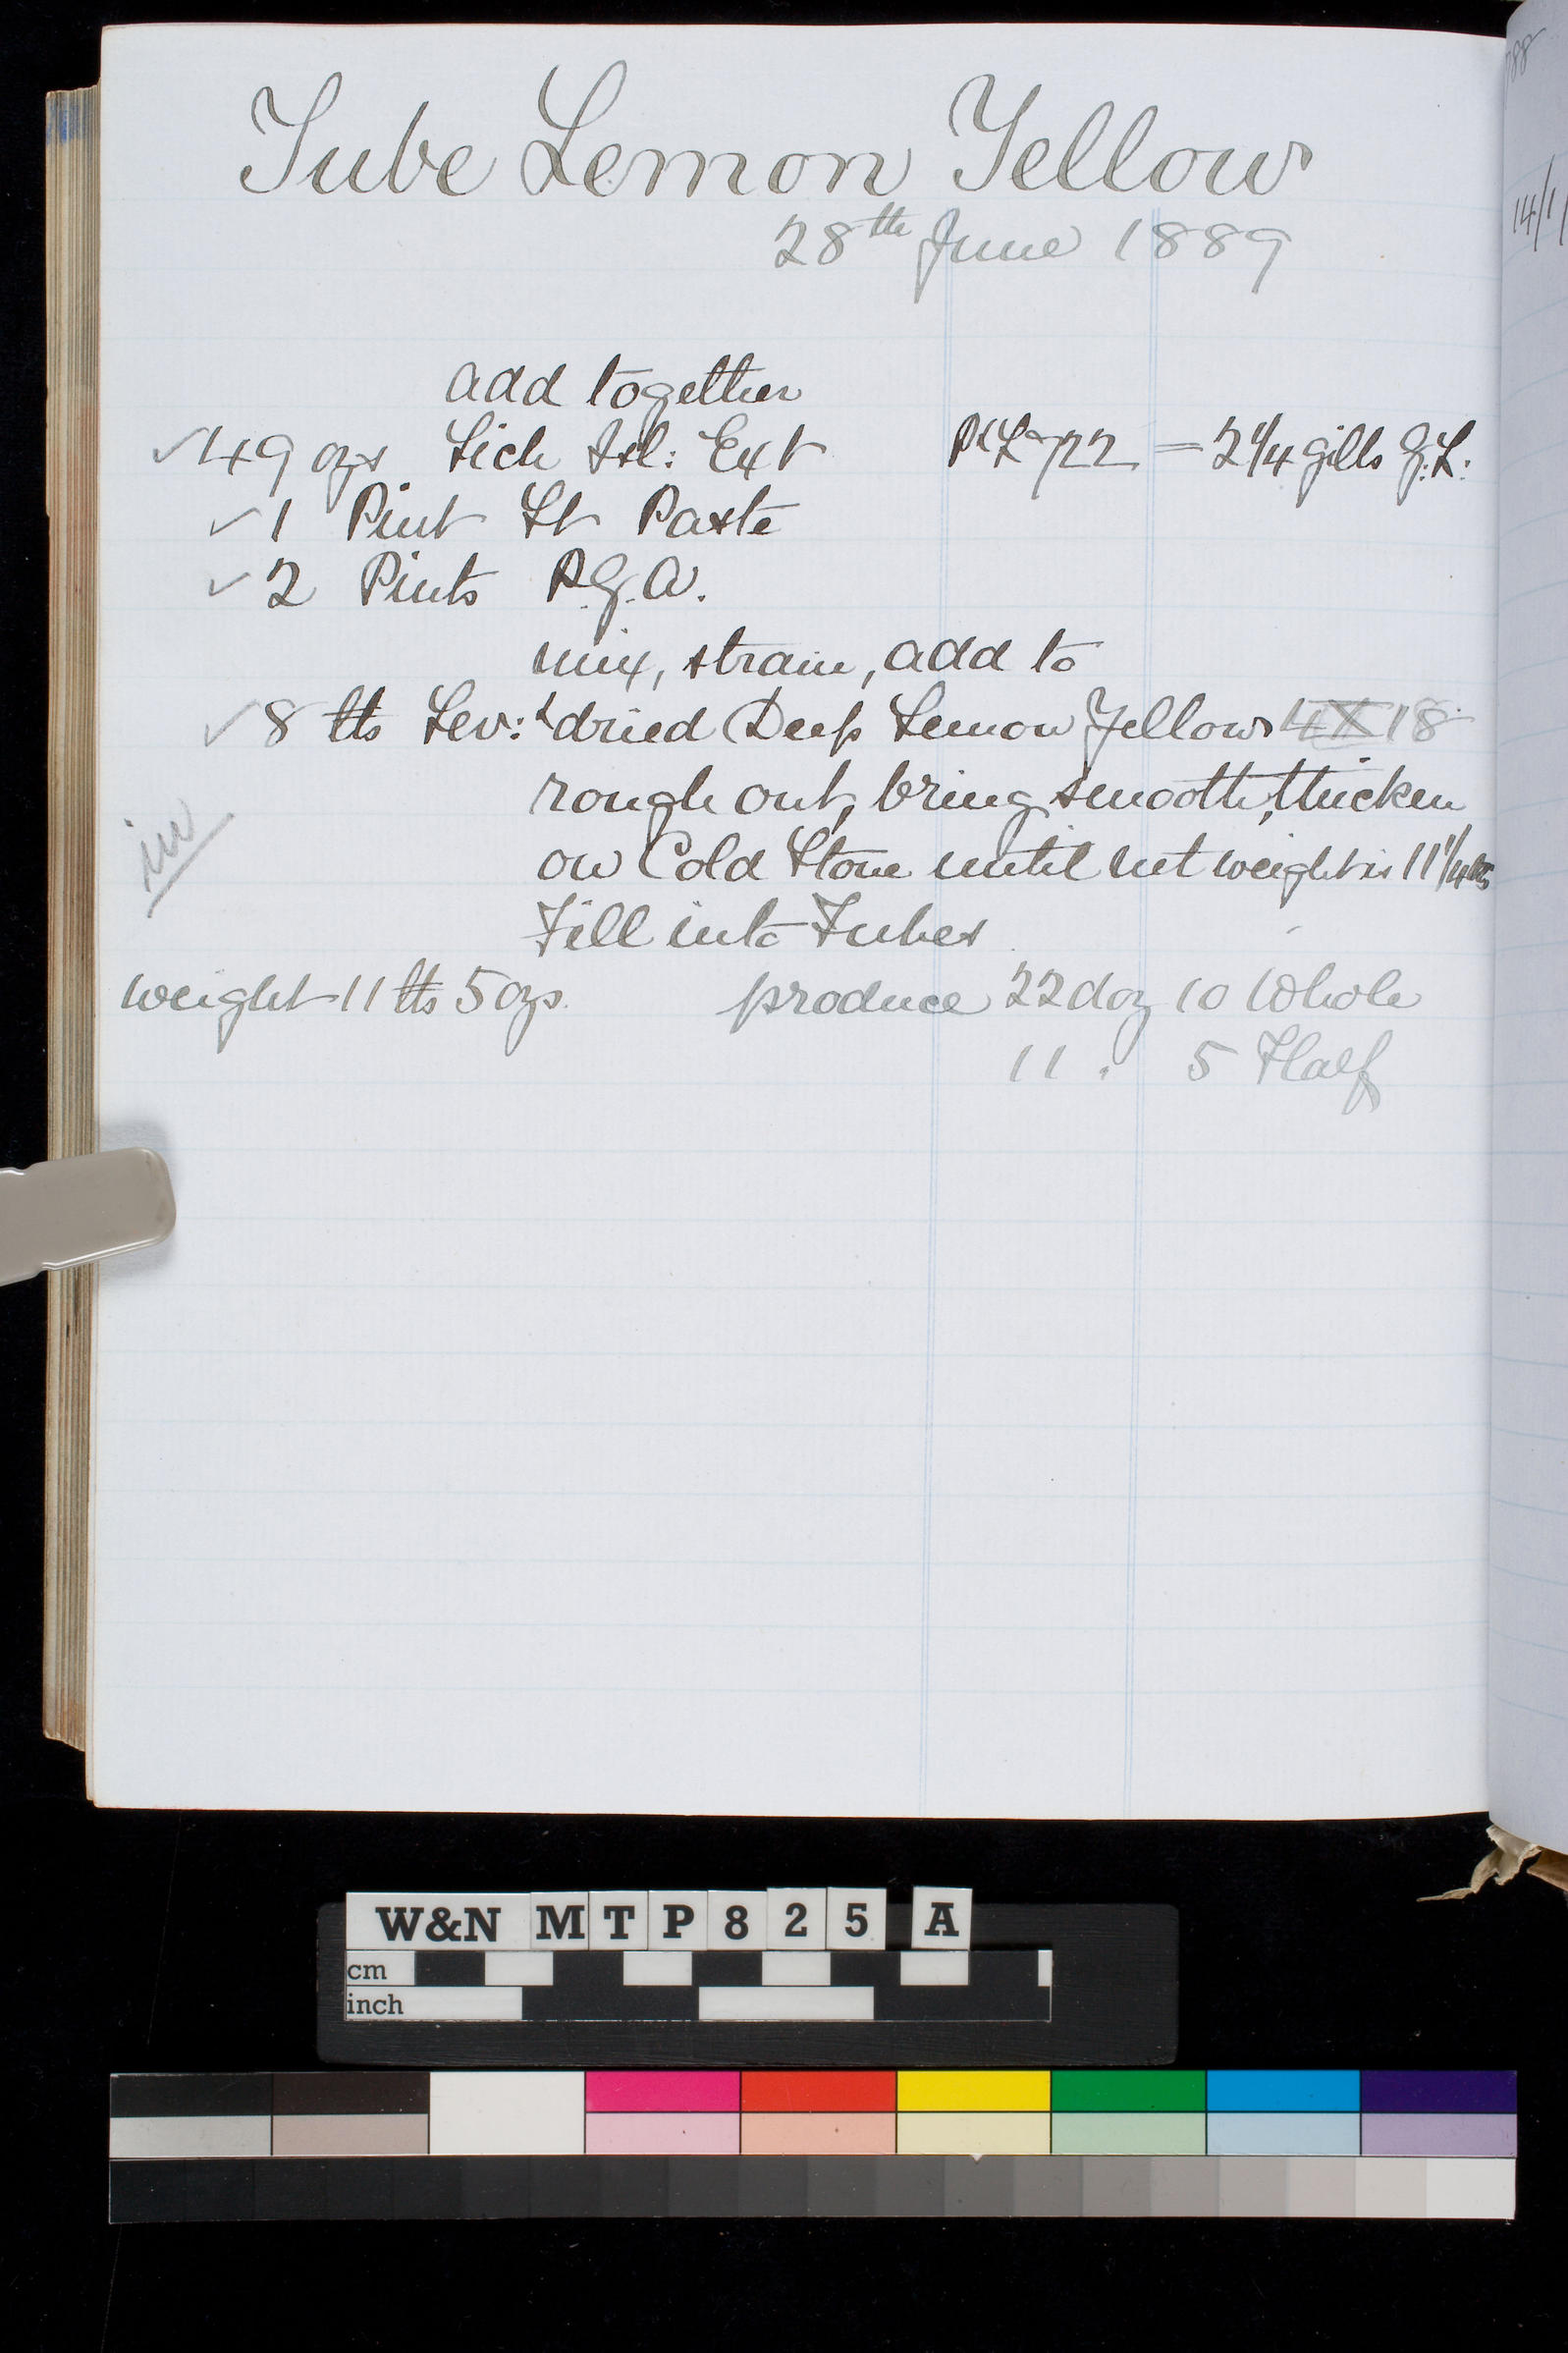 Tube Lemon Yellow
28th June 1889
add together
✓ 49 ozs Lich Isl: Ext = 2 1/4 gills G.L:
✓ 1 Pint St Paste
✓ 2 Pints P.G.A.
mix, strain, add to
✓ 8 lbs Lev:d dried Deep Lemon Yellow 18
rough out, bring smooth, thicken
on Cold Stone until net weight is 11 1/4 lbs
Fill into Tubes
in
weight 11 lbs 5 ozs. produce 22 doz 10 Whole
11 . 5 Half
14/1
W&N MTP825 A
cm
inch